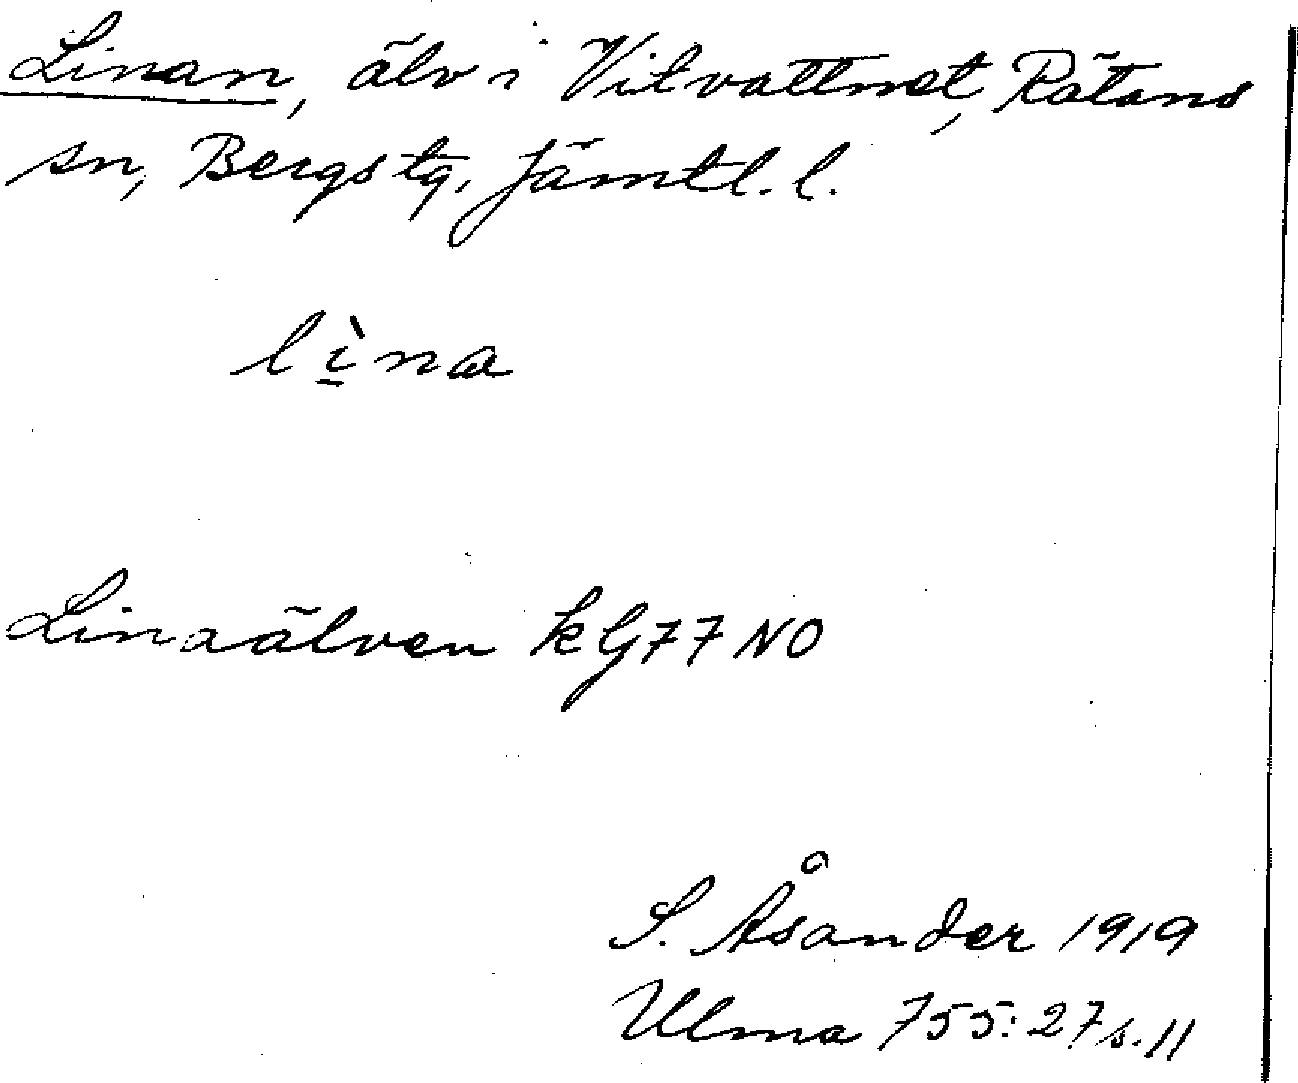 Linan, älv i Vitvattnet, Rätans
sn, Bergs tg, Jämtl. l.
lı̱̀na
Linaälven kG77NO
S. Åsander 1919
Ulma 755:27 s. 11